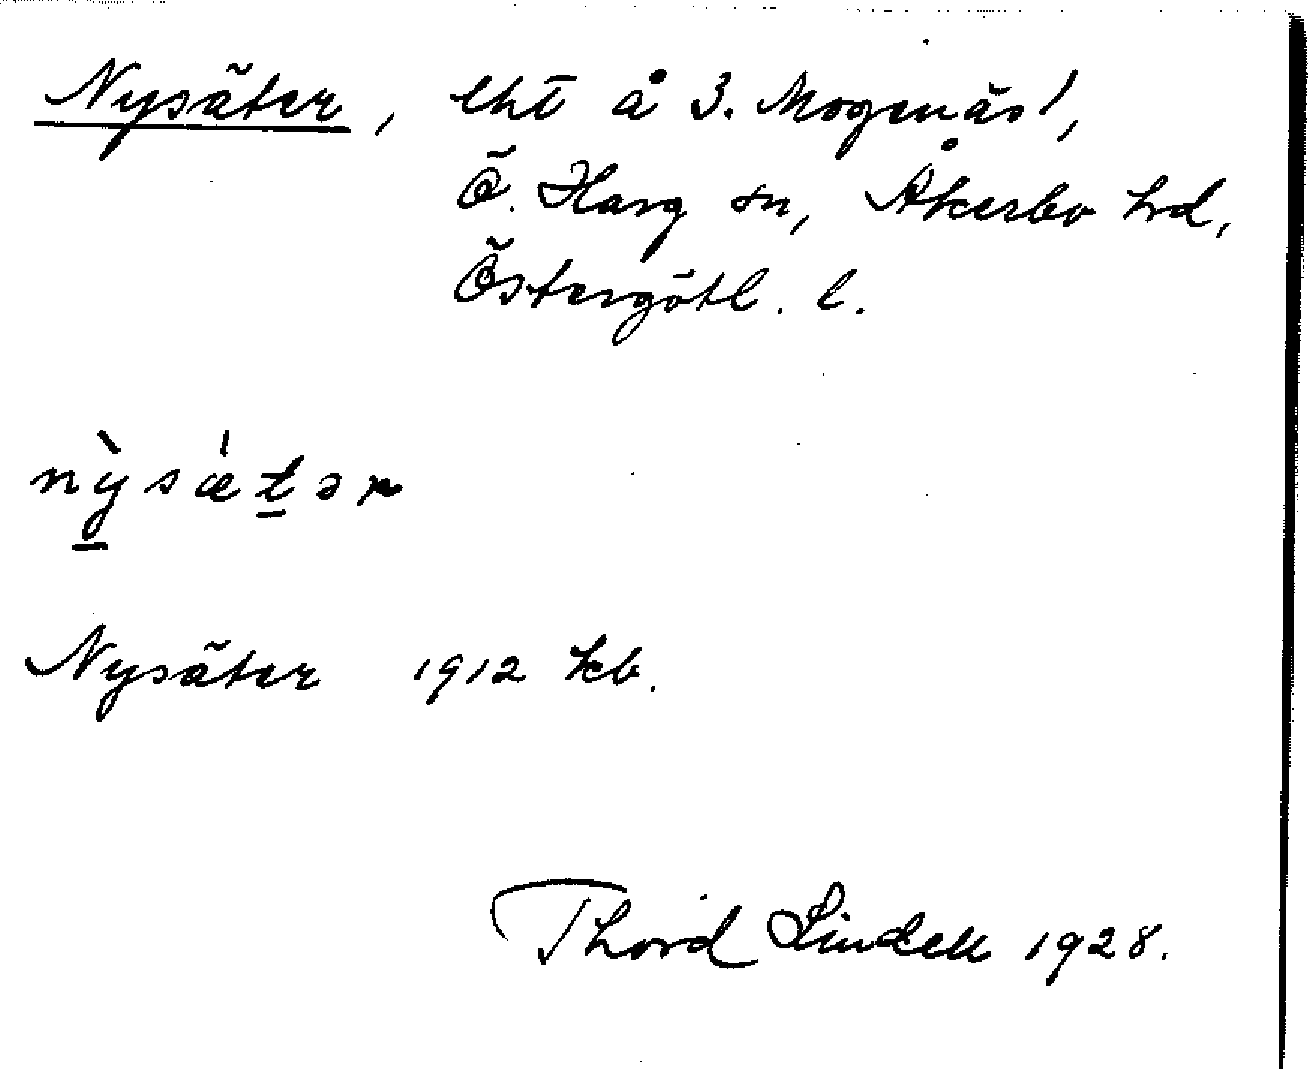 Nysäter, lht å 3. Mogenäs/,
Ö. Harg sn, Åkerbo hd,
Östergötl. l.
nỳsæ̍tər
Nysäter 1912 kb.
Thord Lindell 1928.